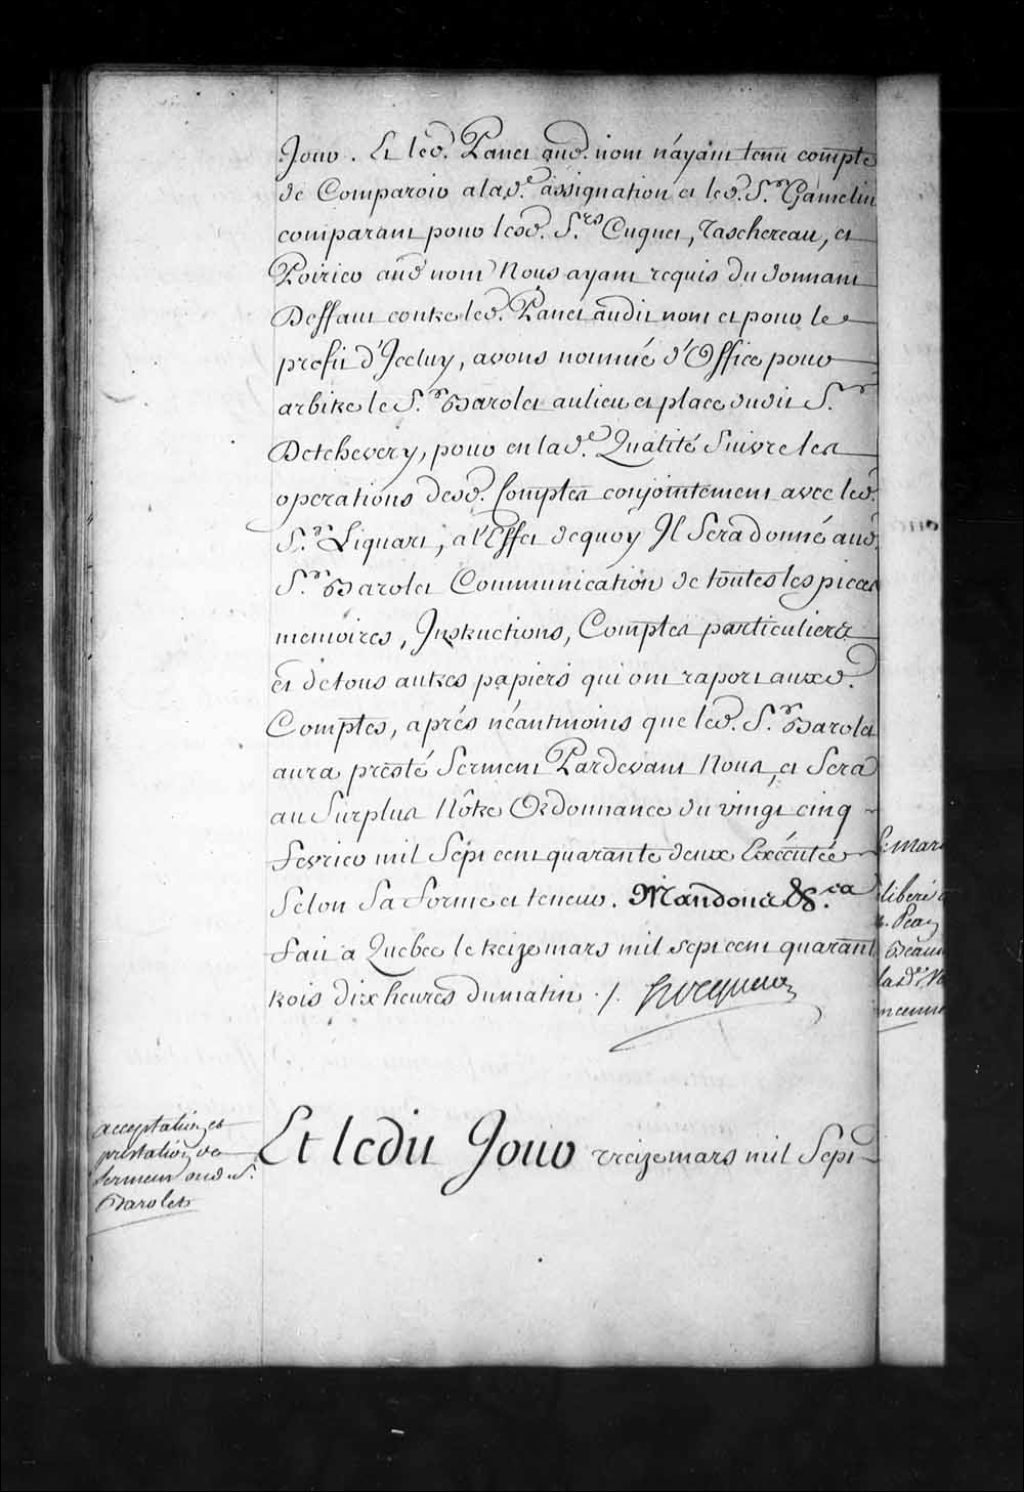 Jour. Et led. Panet aud. nom n'ayant tenu compte
de Comparoir a lad.e assignation et led. S.r Gamelin
comparant pour lesd. S.rs Cugnet, Taschereau, et
Poirier aud nom Nous ayant requis Du donnant
Deffaut contre led. Panet audit nom et pour le
profit d'Jceluy, avons nommé d'Office pour
arbitre le S.r Barolet au lieu et place dudit S.r
Detchevery, pour en lad.e Qualité Suivre les
operations desd. Comptes conjointement avec led.
S.r Liquart, a l'Effet dequoy Jl Sera donné aud.
S.r Barolet Communication de toutes les pieces
memoires, Jnstructions, Comptes particuliers
et de tous autres papiers qui ont raport auxd.
Comptes, aprés néantmoins que led. S.r Barolet
aura presté Serment Pardevant Nous, et Sera
au Surplus Nôtre Ordonnance du vingt cinq
fevrier mil Sept cent quarante deux Exécutée
Selon Sa forme et teneur. Mandons &.ca
fait a Quebec le treize mars mil sept cent quarant
trois dix heures du matin ./. Hocquart
acceptation et
prestation de
serment dud. S.
Barolet
Et ledit Jour treize mars mil Sept
mars
liberé
Pean
Beau
lad.e